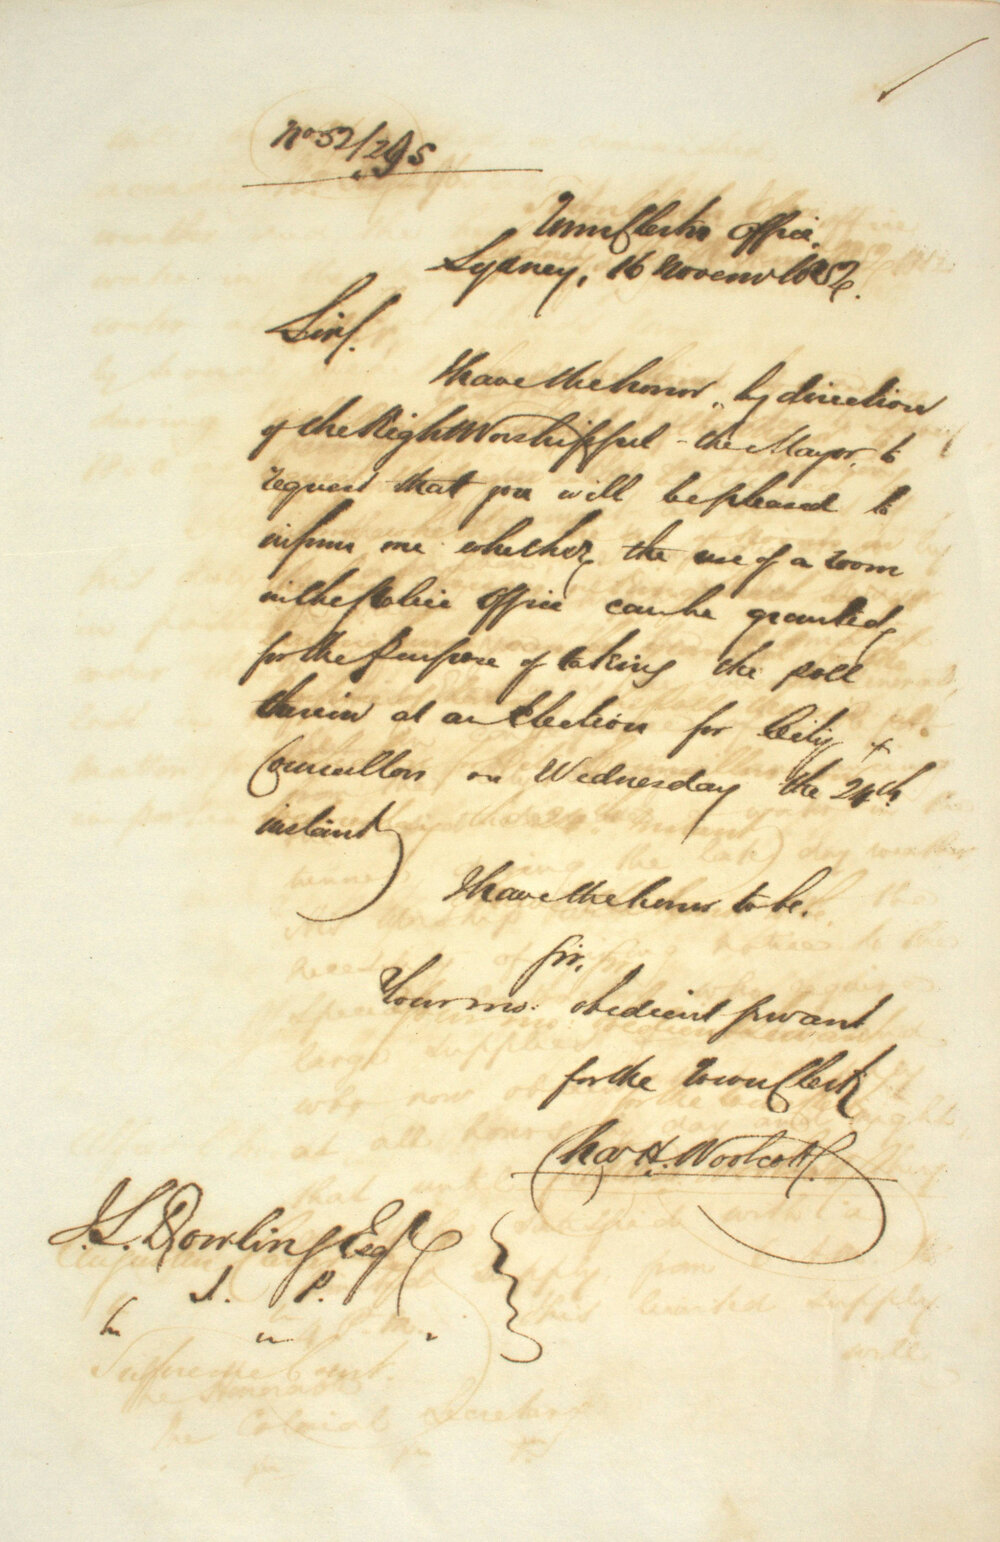 No 52/295
Town Clerks Office,
Sydney, 16 Novemr 1852.
Sir,
I have the honor, by direction
of the Right Worshipful - the Mayor, to
request that you will be pleased to
inform me whether the use of a room
in the Police Office can be granted,
for the Purpose of taking the poll
therein at an Election for City
Councillors on Wednesday the 24th
instant
I have the honor to be.
Sir,
Your mo: obedient Servant
for the Town Clerk
Chas H. Woolcott
J. L. Dowling Esqr
J. P.